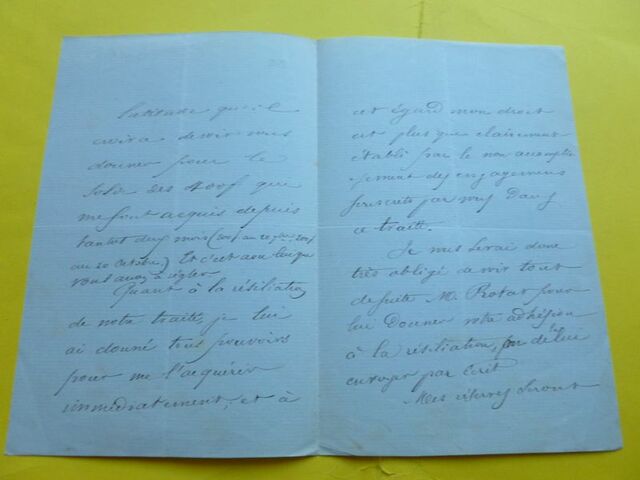 latitude qu'il
croira devoir vous
donner pour le
solde des 400f qui
me sont acquis depuis
tantot deux mois (200f au 20 7bre 200f
au 20 Octobre) Et c'est a lui que
vous aurez à régler
Quant à la résiliation
de notre traité, je lui
ai donné tous pouvoirs
pour me l'acquérir
immédiatement, et à
cet égard mon droit
est plus que clairement
établi par le non accomplis
sement des engagemens
souscrits par vous dans
ce traité.
Je vous serai donc
très obligé de voir tout
de suite M. Rotat pour
lui donner votre adhésion
à la résiliation, ou de la lui
envoyer par écrit
Mes seront